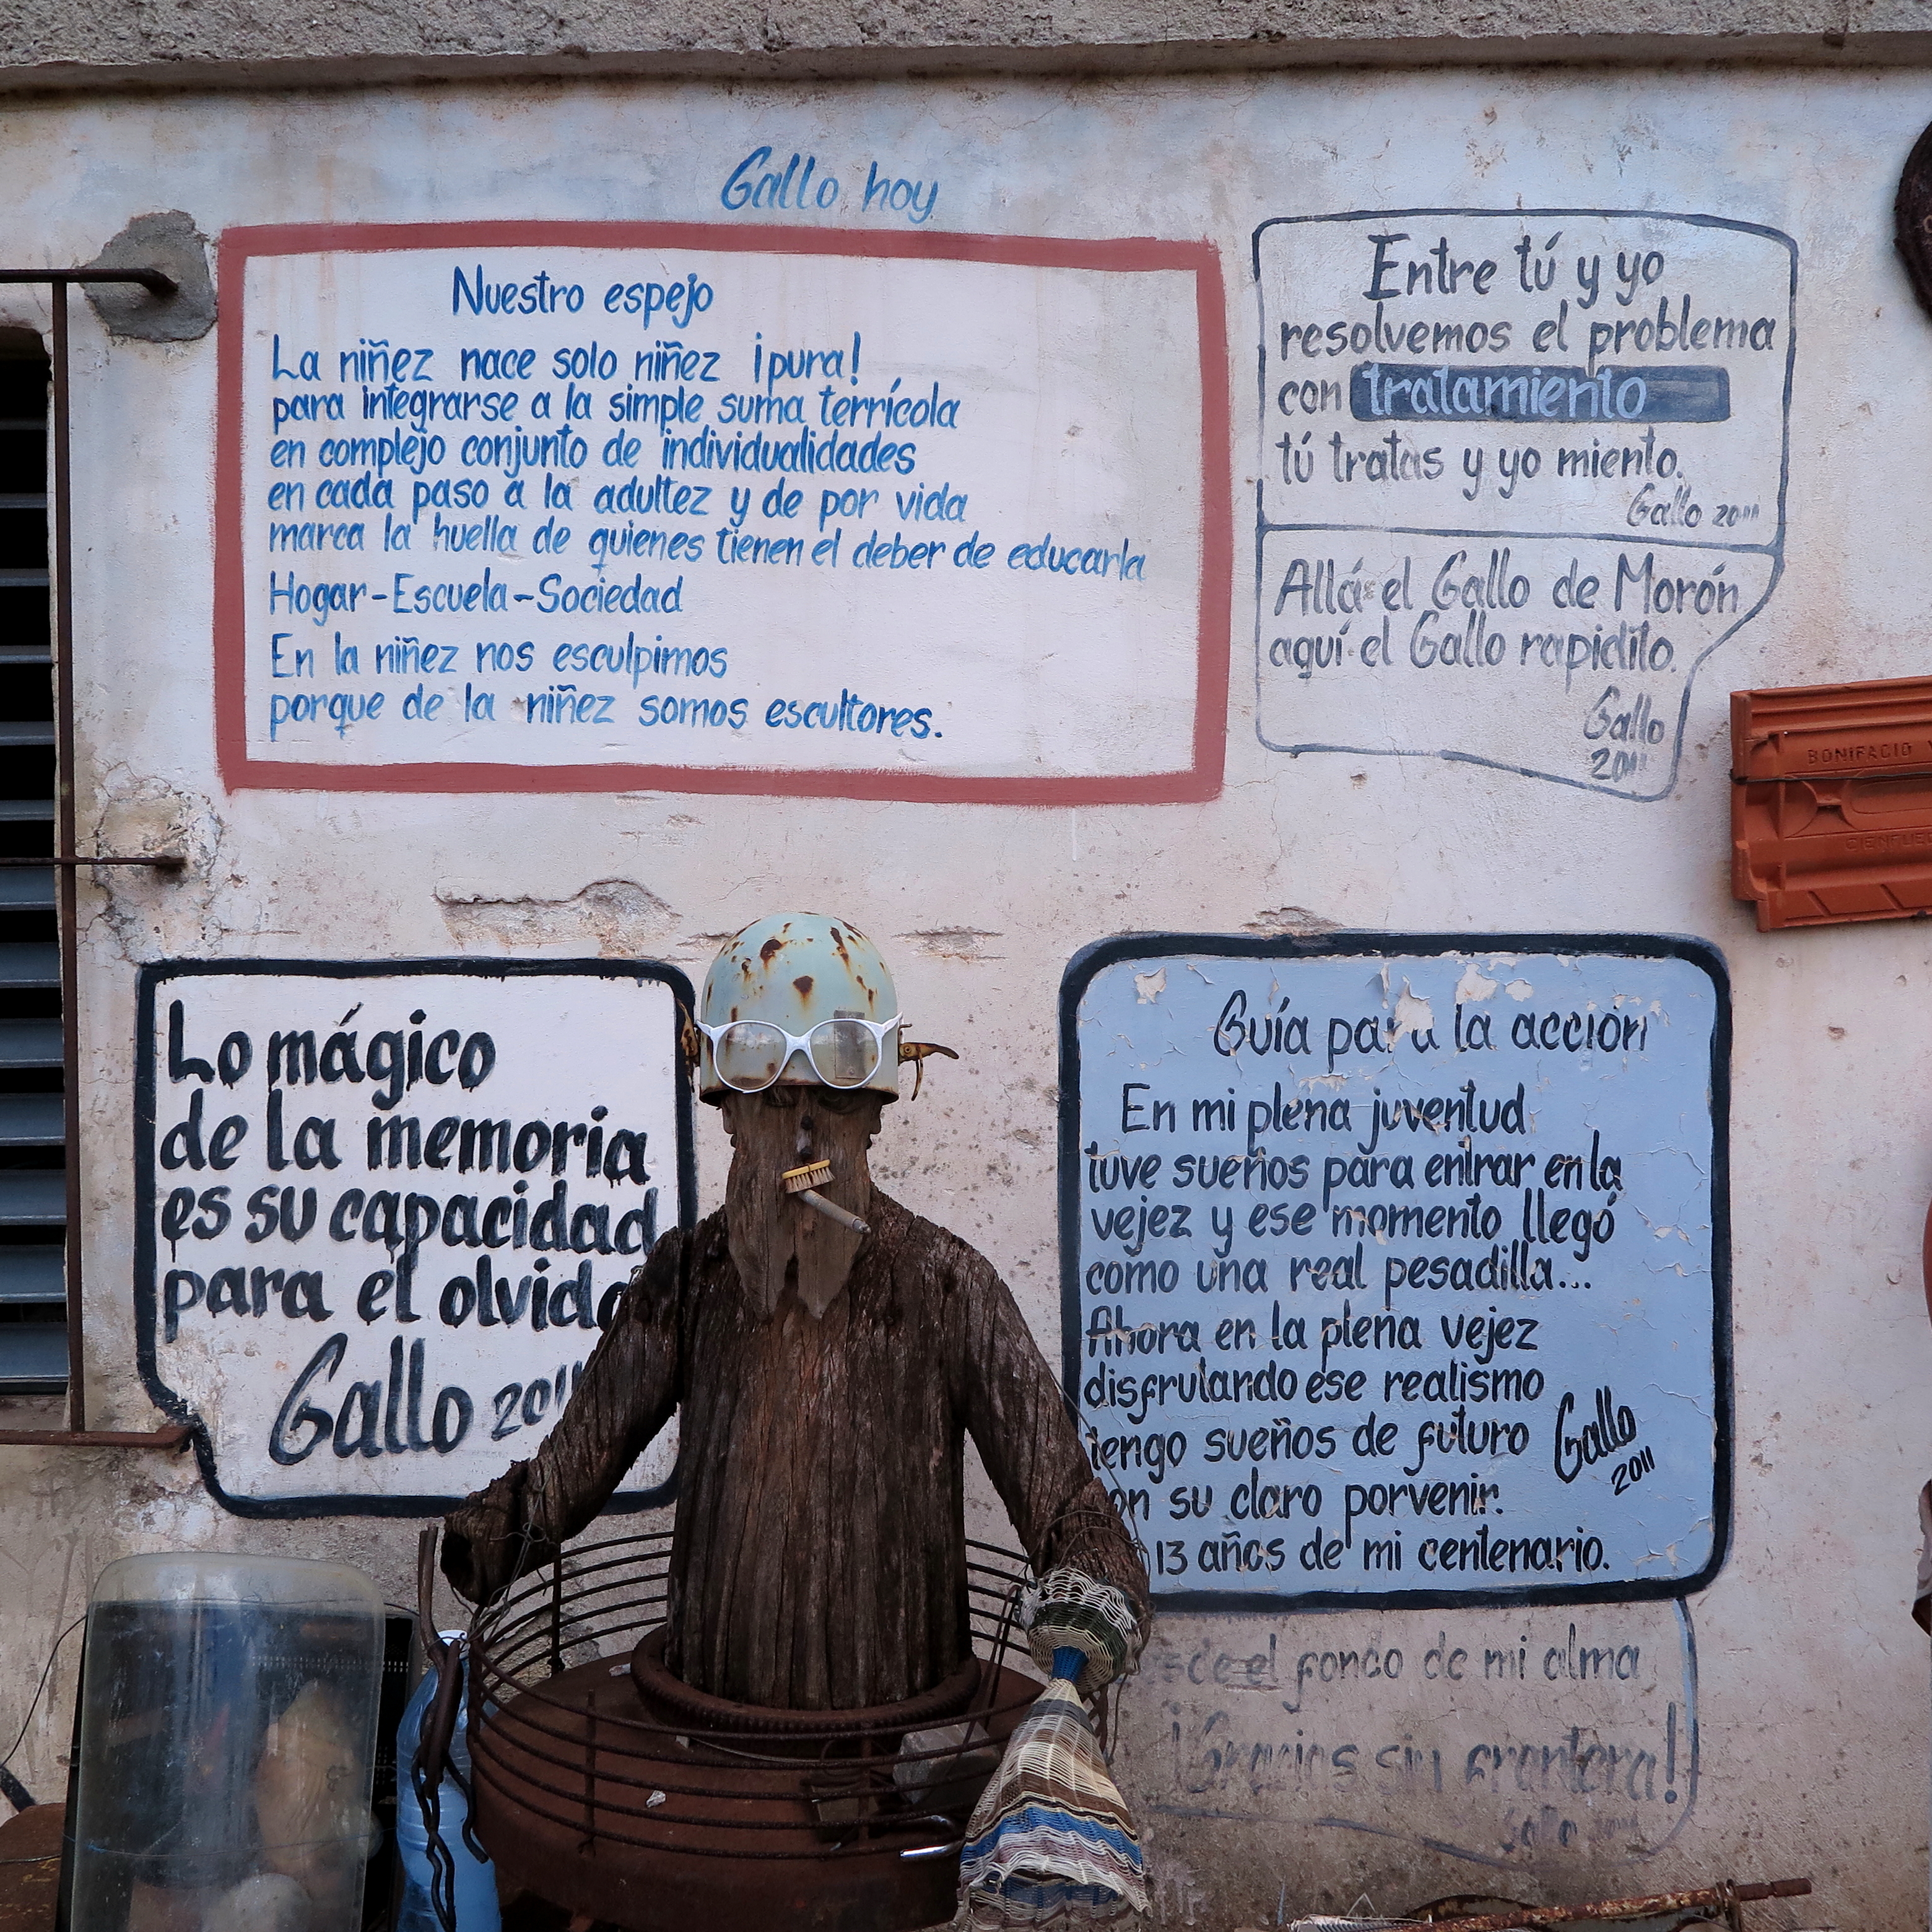 Gallo hoy
Nuestro espejo
La niñez nace solo niñez ¡pura!
para integrarse a la simple suma terrícola
en complejo conjunto de individualidades
en cada paso a la adultez y de por vida
marca la huella de quienes tienen el deber de educarla
Hogar-Escuela-Sociedad
En la niñez nos esculpimos
porque de la niñez somos escultores.
Entre tú y yo
resolvemos el problema
con tratamiento
tú tratas y yo miento.
Gallo 2011
Allá el Gallo de Morón
aquí el Gallo rapidito.
Gallo
2011
BONIFACIO
Lo mágico
de la memoria
es su capacidad
para el olvido
Gallo 2011
Guía para la acción
En mi plena juventud
tuve sueños para entrar en la
vejez y ese momento llegó
como una real pesadilla...
Ahora en la plena vejez
disfrutando ese realismo
tengo sueños de futuro
con su claro porvenir.
13 años de mi centenario.
Gallo
2011
el fondo de mi alma
¡Gracias sin frontera!
Gallo